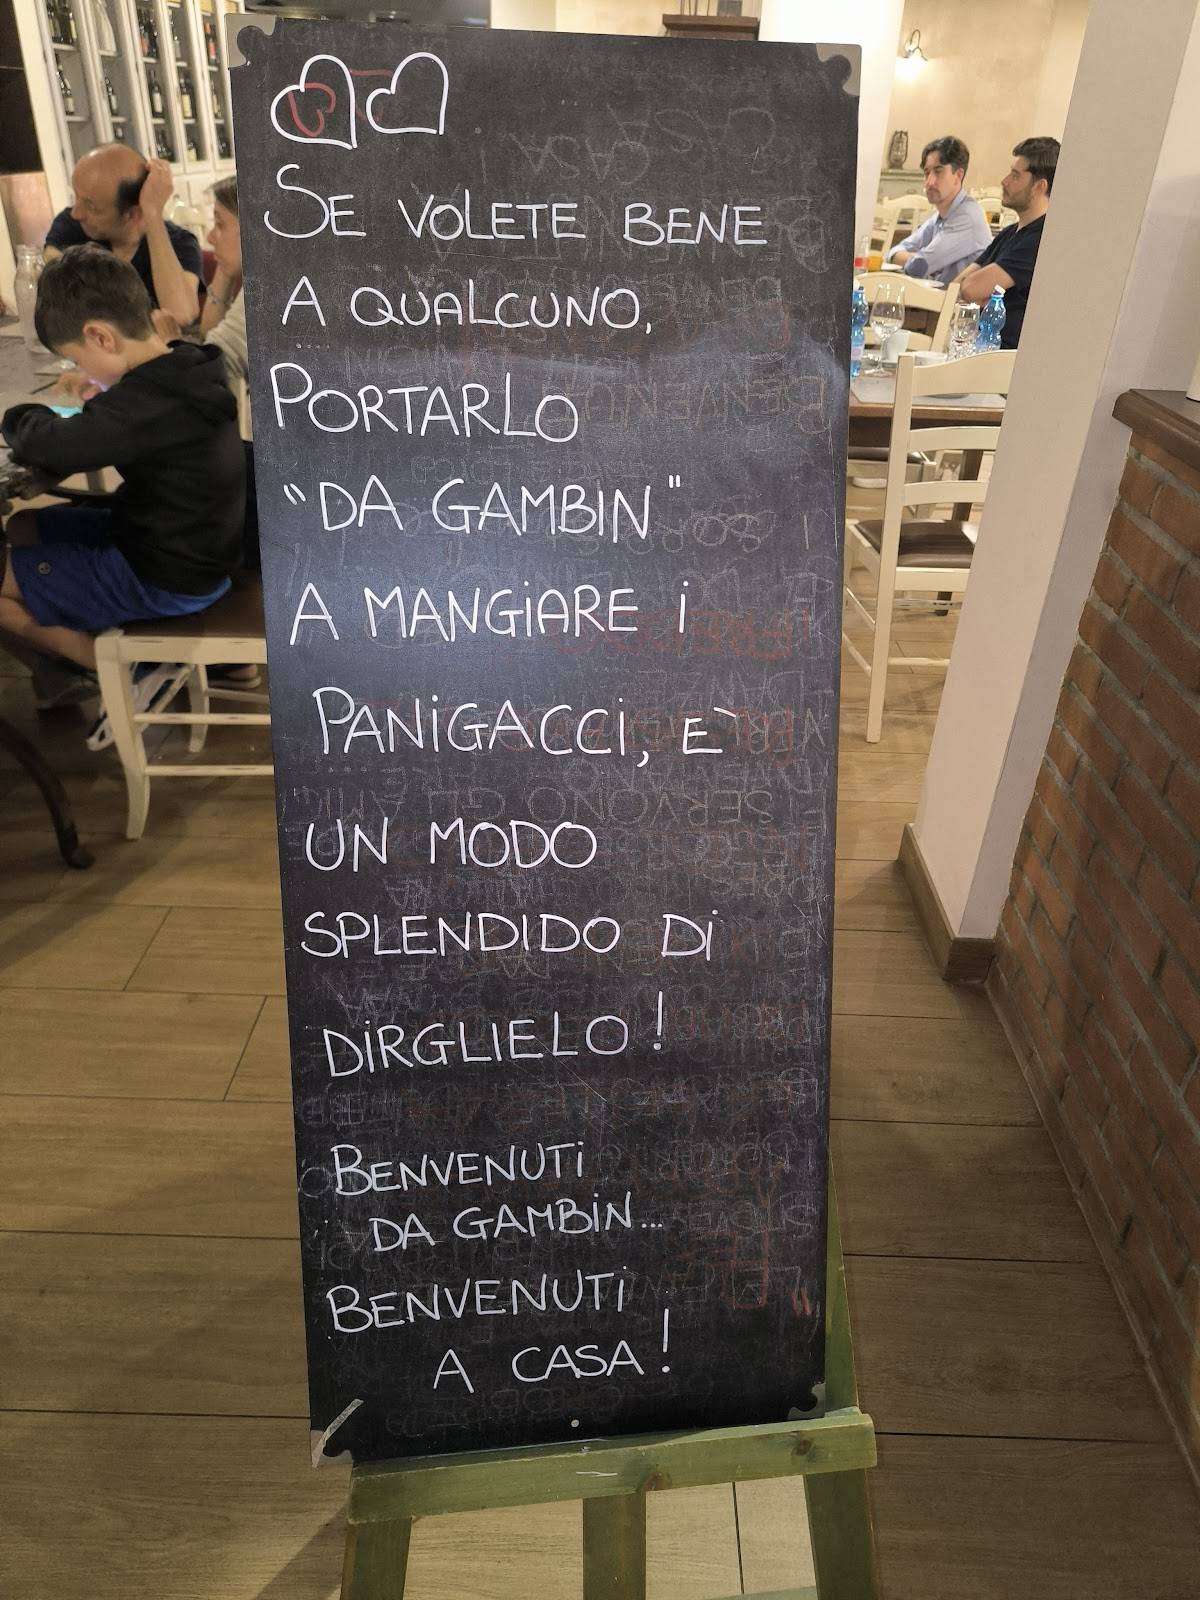 SE VOLETE BENE
A QUALCUNO,
PORTARLO
"DA GAMBIN"
A MANGIARE I
PANIGACCI, E`
UN MODO
SPLENDIDO DI
DIRGLIELO!
BENVENUTI
DA GAMBIN...
BENVENUTI
A CASA!